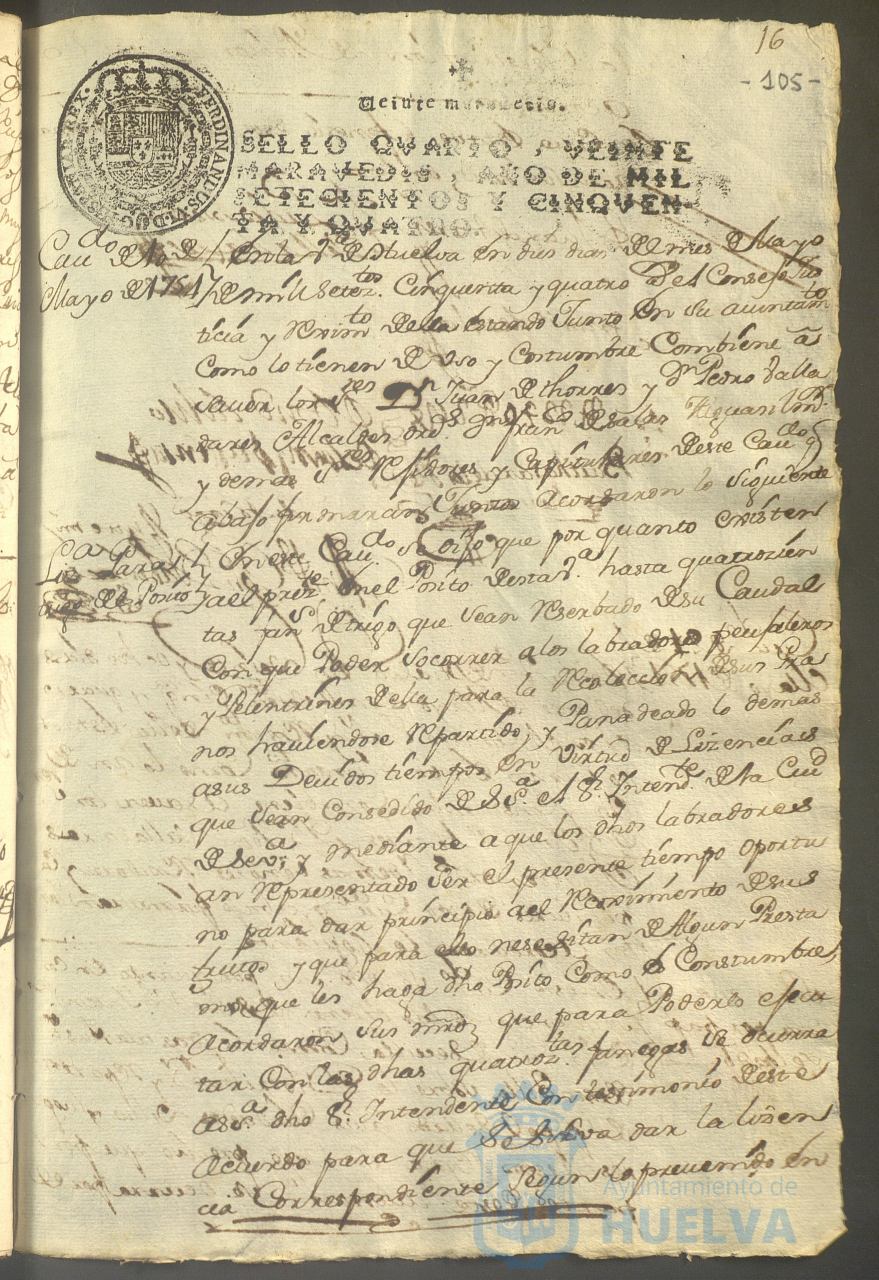 16
- 105 -
FERDINANDUS VI D G
HISPANIAR REX
Veinte maravedis.
SELLO QVARTO, VEINTE
MARAVEDIS, AÑO DE MIL
SETECIENTOS Y CINQVEN
TA Y QVATRO.
Cavdo de 10 de
Mayo de 1754
En la va de Huelva en dies dias del mes de Mayo
de mil setetos Cinquenta y quatro el Consejo Jus
ticia y Reximto de ella estando Junto en su aiuntamto
Como lo tienen de Uso y Costumbre Combiene a
saver los Sres Dn Juan de thorres y Dn Pedro Valla
dares Alcaldes ordos Fran de Sales Alguasil mr
y demas Sres Rexidores y Capitulares de este Cavdo q
abajo firmaran Juntos Acordaron lo siguiente
Lza Para el
trigo del Posito
En este Cavdo se Dijo que por quanto existen
al preste en el Posito de esta Va hasta quatrozien
tas fans de trigo que sean Reserbado de su Caudal
Con que Poder socorrer a los labradores peujaleros
y Pelentrines de ella para la Recoleccion de sus Gra
nos haviendose Repartido, y Panadeado lo demas
a sus Devidos tiempos en virtud de Lizencias
que sean Consedido de Sa. el Sr. Intendte de la Ciud
de Seva y mediante a que los dhos labradores
an Representado ser el presente tiempo oportu
no para dar principio a el Recoximiento de sus
frutos y que para ello nesesitan de Algun Presta
mo que les haga dho Posito, Como es Constumbre,
Acordaron sus mrds que para Poderlo efecu
tar Con las dhas quatroztas fanegas se ocurra
a sa. dho Sr. Intendente Con testimonio de este
Acuerdo para que se sirva dar la lizen
cia Correspondiente segun lo prevenido en
Ayuntamiento de
HUELVA